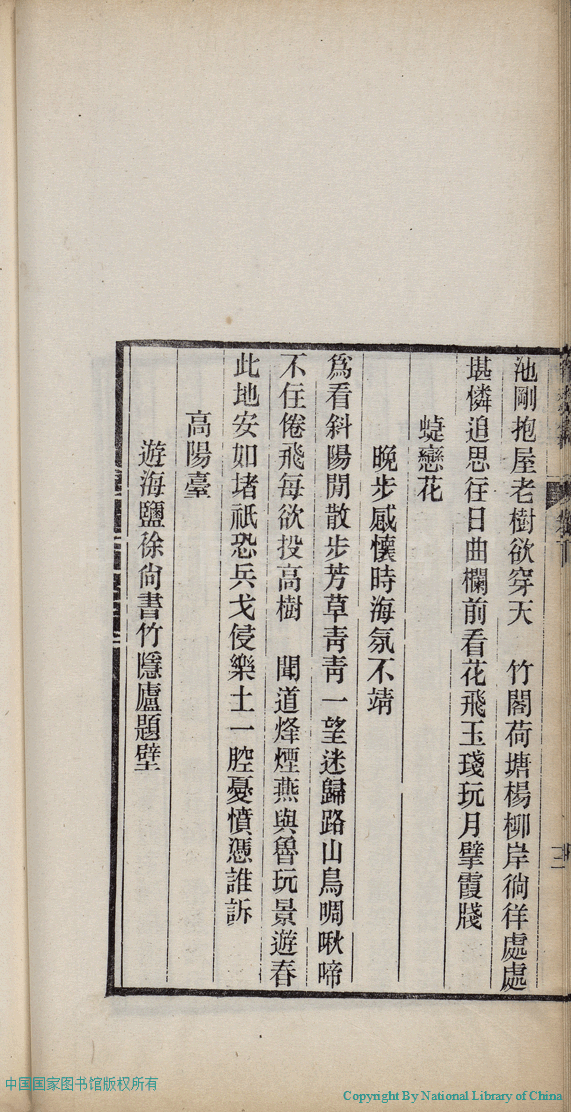 池剛抱屋老樹欲穿天　竹閣荷塘楊柳岸徜徉處處
堪憐追思往日曲欄前看花飛玉琖玩月擘霞牋
蜨戀花
晚步感懷時海氛不靖
爲看斜陽閒散步芳草靑靑一望迷歸路山鳥啁啾啼
不住倦飛每欲投高樹　聞道烽煙燕與魯玩景遊春
此地安如堵祇恐兵戈侵樂土一腔憂憤憑誰訴
高陽臺
遊海鹽徐尙書竹隱廬題壁
中国国家图书馆版权所有
Copyright By National Library of China